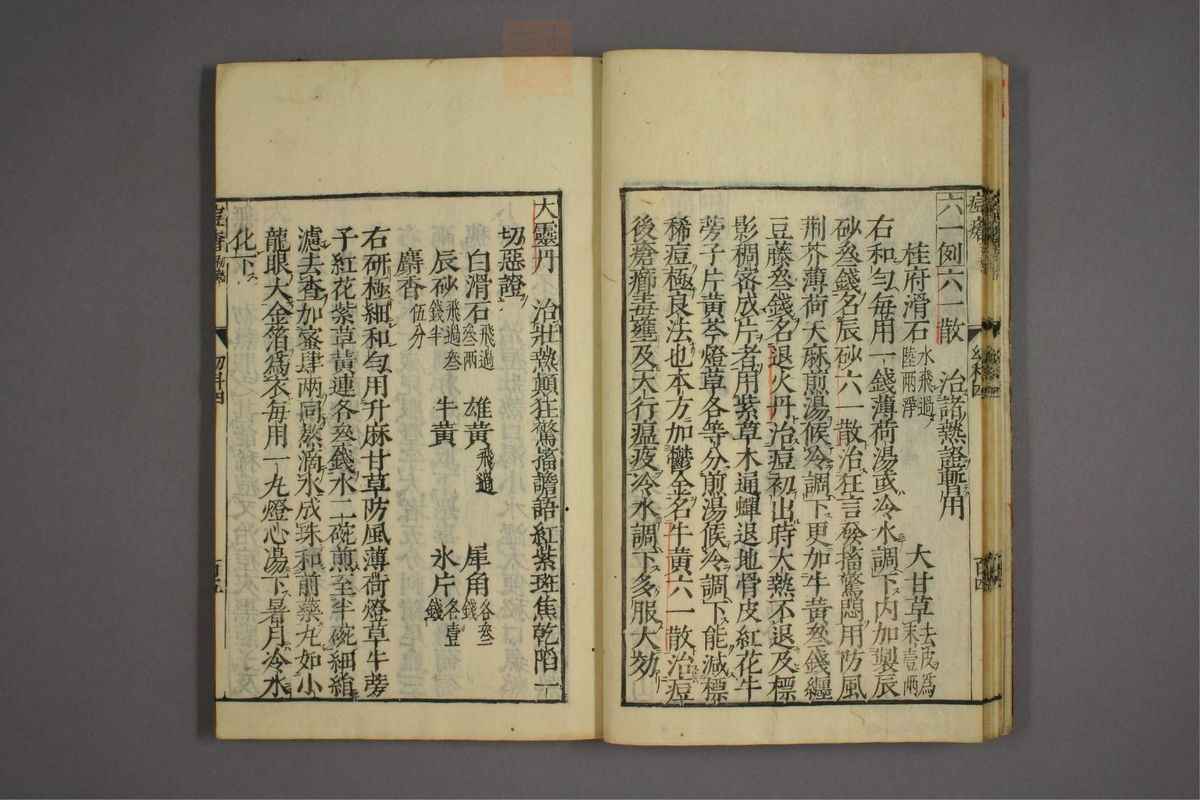 六一例六一散 治諸熱證暫用
桂府滑石水飛過陸兩淨 大甘草去皮為末壹兩
右和勻每用一錢薄荷湯或冷水調下內加製辰
砂叄錢名辰砂六一散治狂言發搐驚悶用防風
荆芥薄荷天麻煎湯候冷調下更加牛黃叄錢纏
豆藤叄錢名退火丹治痘初出時大熱不退及標
影稠密成片者用紫草木通蟬退地骨皮紅花牛
蒡子片黃芩燈草各等分煎湯候冷調下能減標
稀痘極良法也本方加鬱金名牛黃六一散治痘
後瘡癤毒壅及天行瘟疫冷水調下多服大効
大靈丹 治壯熱顛狂驚搐譫語紅紫斑焦乾陷一
切惡證
白滑石飛過叄兩 雄黃飛過 犀角各叄錢
辰砂飛過叄錢半 牛黃 氷片各壹錢
麝香伍分
右研極細和勻用升麻甘草防風薄荷燈草牛蒡
子紅花紫草黃連各叄錢水二碗煎至半碗細絹
濾去查加蜜肆兩同熬滴水成珠和前藥丸如小
龍眼大金箔爲衣每用一丸燈心湯下暑月冷水
化下